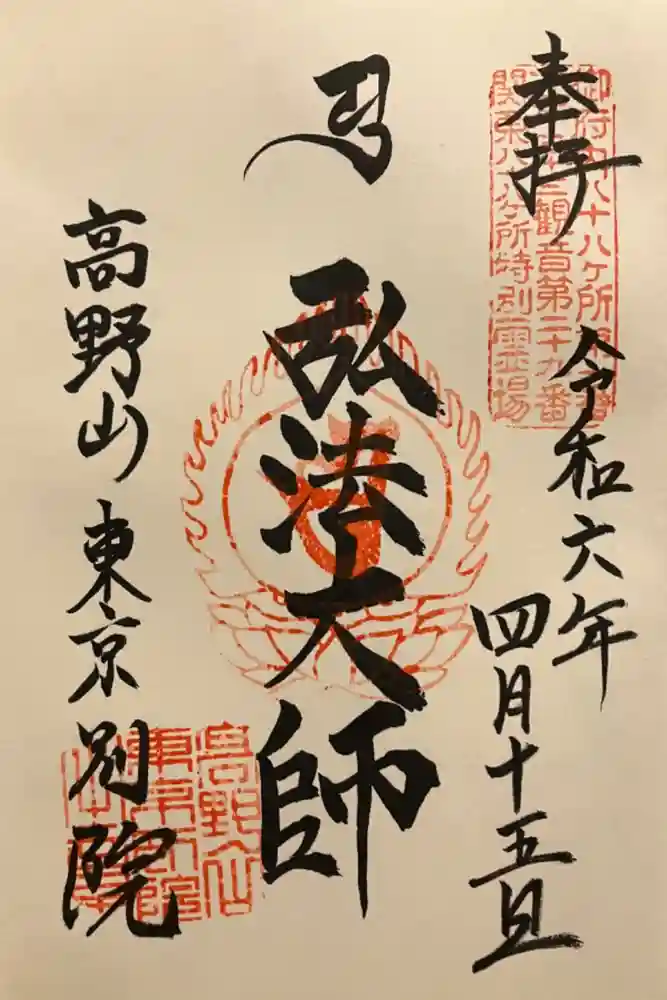 奉拝
御府内八十八ヶ所第一番
観音第二十九番
関東八十八ヶ所特別霊場
令和六年
四月十五日
弘法大師
高野山東京別院
高野山
東京別院